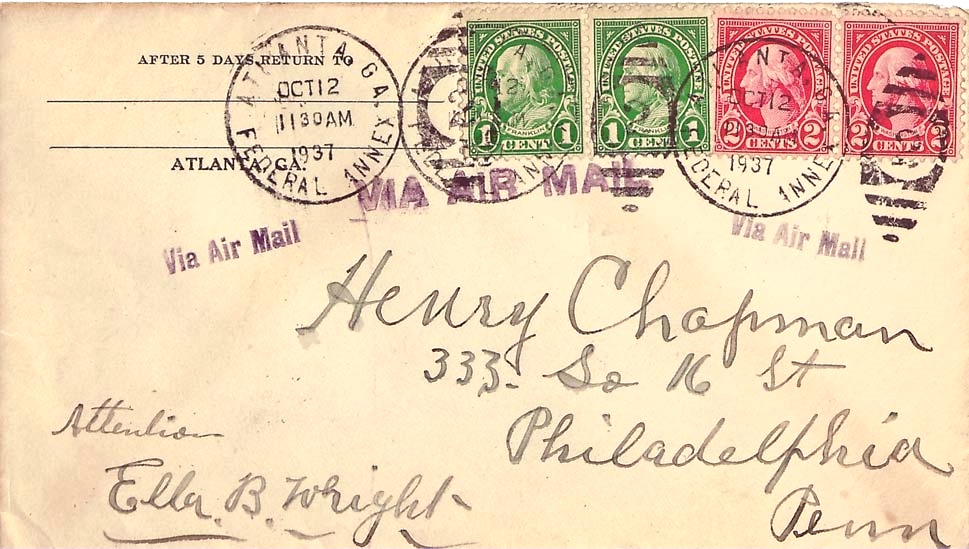 AFTER 5 DAYS, RETURN TO
ATLANTA, GA.
ATLANTA GA.
OCT 12
11 30 AM
1937
FEDERAL ANNEX
UNITED STATES POSTAGE
FRANKLIN
1 CENT 1
UNITED STATES POSTAGE
FRANKLIN
1 CENT 1
UNITED STATES POSTAGE
2 CENTS 2
UNITED STATES POSTAGE
2 CENTS 2
OCT 12
1937
FEDERAL ANNEX
VIA AIR MAIL
Via Air Mail
Via Air Mail
Henry Chapman
333 So 16 St
Philadelphia
Penn
Attention
Ella. B. Wright